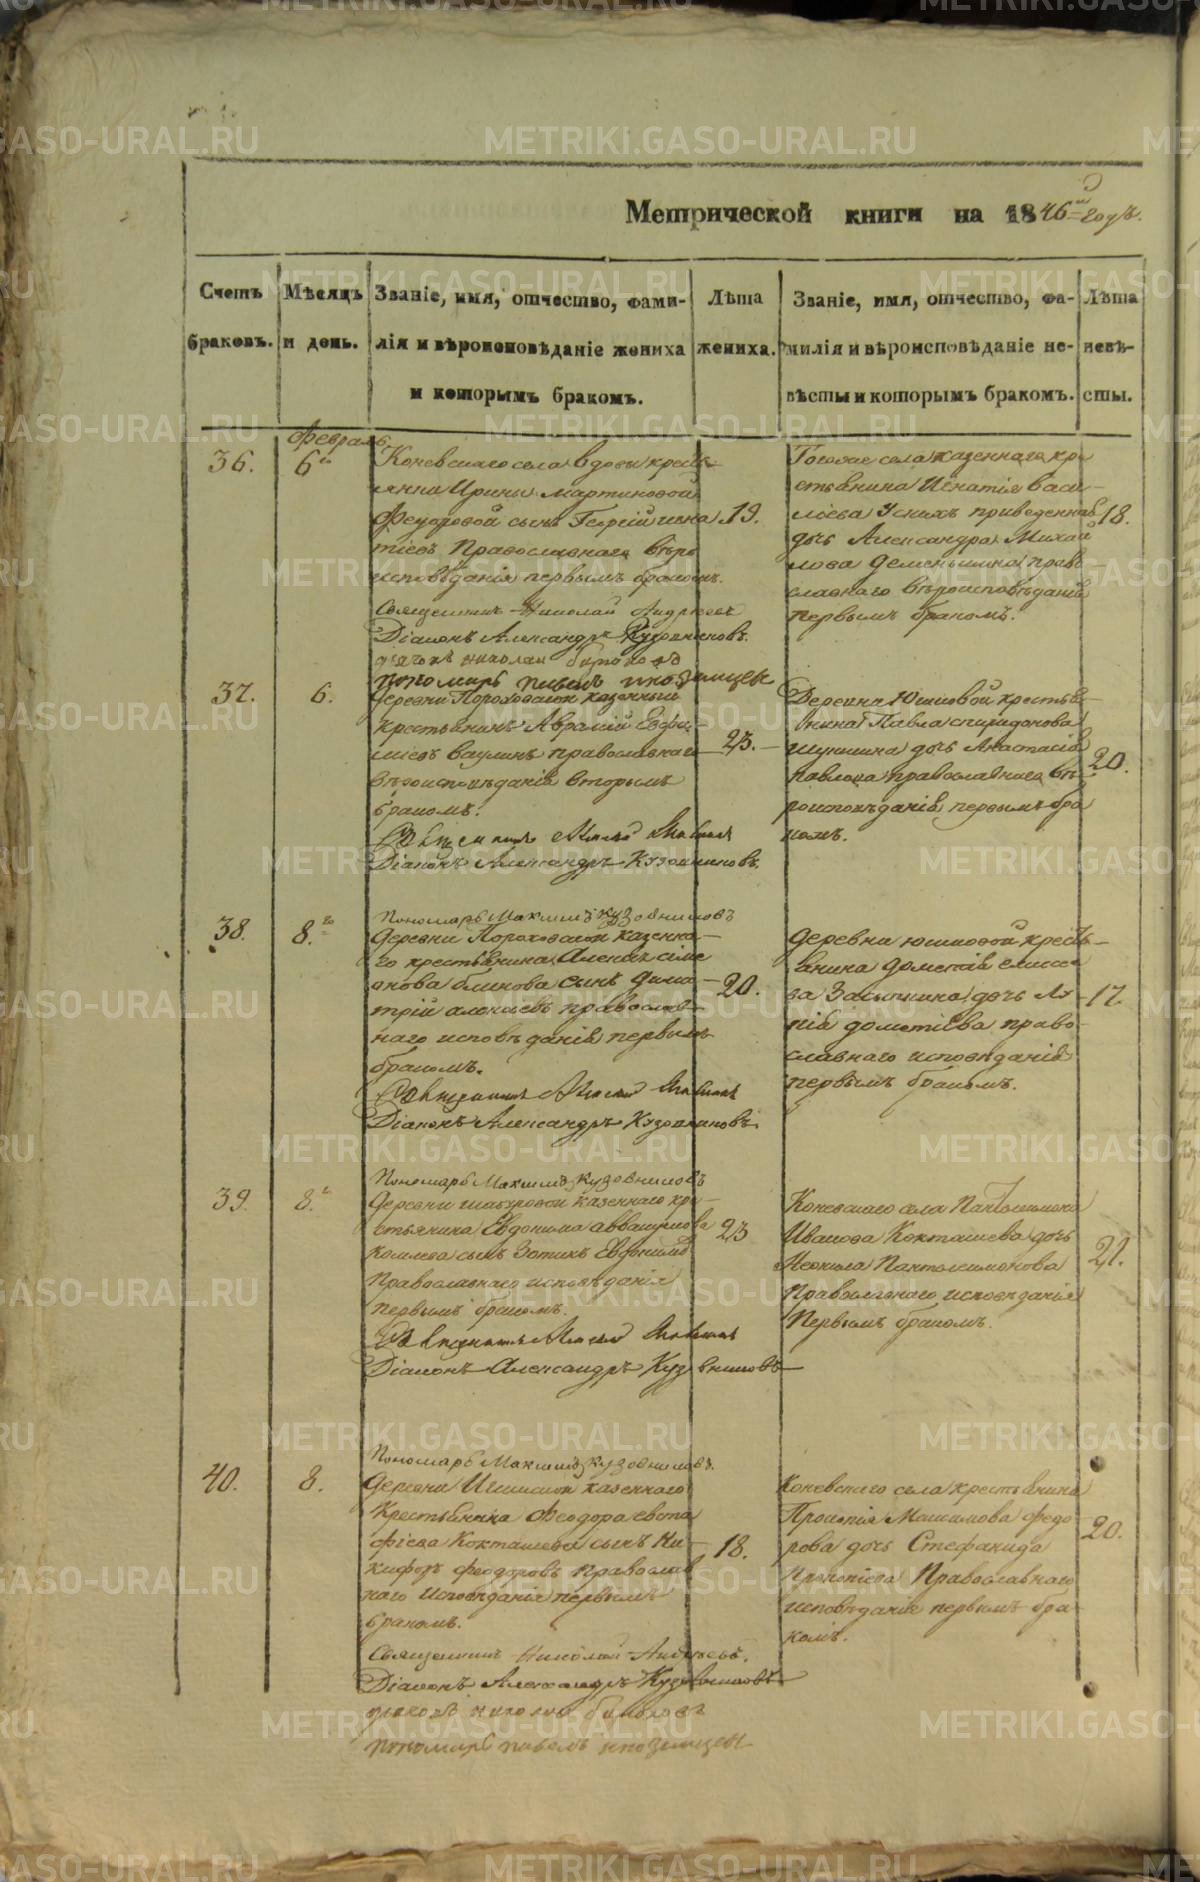 Метрической книги на 1846й годъ.
Счетъ браковъ.
Мѣсяцъ и день.
Званіе, имя, отчество, фами-
лія и вѣроисповѣданіе жениха
и которымъ бракомъ.
Лѣта жениха.
Званіе, имя, отчество, фа-
милія и вѣроисповѣданіе не-
вѣсты и которымъ бракомъ.
Лѣта невѣ-
сты.
Февраль
36.
6го
Коневскаго села вдовы кресть-
янки Ирины Мартиновой
Федоровой сынъ Георгій
Православнаго вѣро
исповѣданія первымъ бракомъ.
Священникъ Николай Андреевъ
Діаконъ Александръ Кузовниковъ.
дьячекъ николаи
пономарь павелъ иноземцевъ
19.
села казеннаго кре
стьянина Игнатія Васи
льева приведенная
дочь Александра Михаи
лова Деменьшина право
славнаго вѣроисповѣданія
первымъ бракомъ.
18.
37.
6.
деревни Пороховской казенный
крестьянинъ Аврамій Евфи-
міевъ Ваулинъ православнаго
вѣроисповѣданія вторымъ
бракомъ.
Священникъ
Діаконъ Александръ Кузовниковъ.
Пономарь Максимъ Кузовниковъ
23.
Деревни Юшковой крестья-
нина Павла спиридонова
дочь Анастасія
павлова православнаго вѣ
роисповѣданія первымъ бра
комъ.
20.
38.
8.го
деревни Пороховской казенна-
го крестьянина Алексѣя симе
онова блинова сынъ дими
трій алексѣевъ православ-
наго исповѣданія первымъ
бракомъ.
Священникъ
Діаконъ Александръ Кузовниковъ.
Пономарь Максимъ Кузовниковъ
20.
деревни юшковой кресть-
янина дометія елисе
ва Засыпкина дочь
дометіева право-
славнаго исповѣданія
первымъ бракомъ.
17.
39.
8.го
деревни шабуровой казеннаго кре-
стьянина Евдокима аввакумова
Кошлева сынъ Зотикъ Евдокимовъ
Православнаго исповѣданія
первымъ бракомъ.
Священникъ
Діаконъ Александръ Кузовниковъ
Пономарь Максимъ Кузовниковъ.
23
Коневскаго села Пантелеимона
Иванова Кокташева дочь
Неонила Пантелеимонова
Православнаго исповѣданія
Первымъ бракомъ.
21.
40.
8.
деревни казеннаго
Крестьянина Феодора евста
фіева Кокташева сынъ Ни
кифоръ феодоровъ Православ
наго Исповѣданія первымъ
бракомъ.
Священникъ Николай Андреевъ.
Діаконъ Александръ Кузовниковъ
дьячекъ николаи
пономарь павелъ иноземцевъ
18.
Коневскаго села крестьянина
Прокопія Максимова Федо
рова дочь Стефанида
Прокопіева Православнаго
исповѣданія первымъ бра
комъ.
20.
METRIKI.GASO-URAL.RU